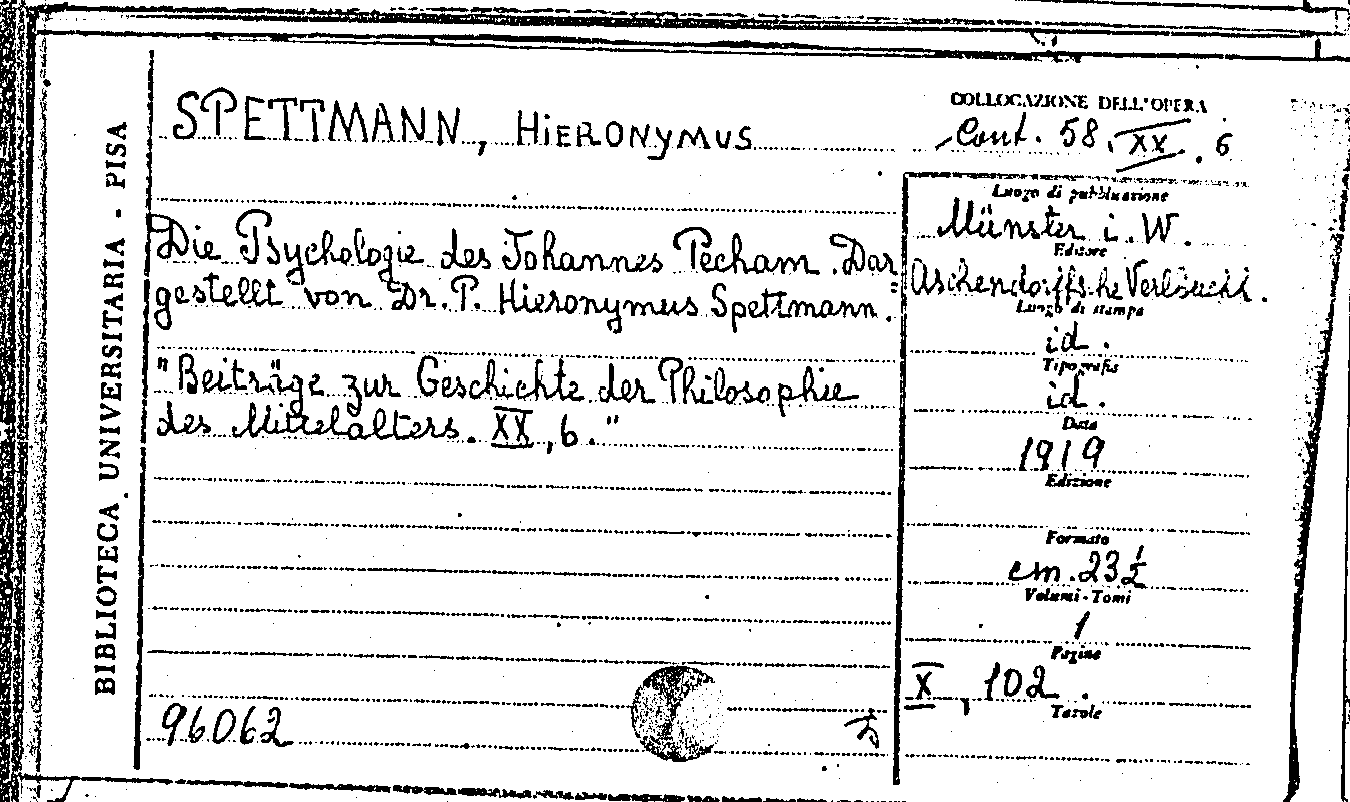 BIBLIOTECA UNIVERSITARIA - PISA
SPETTMANN, HIERONYMUS
Die Psychologie des Johannes Pecham. Dar=
gestellt von Dr. P. Hieronymus Spettmann.
"Beiträge zur Geschichte der Philosophie
des Mittelalters. XX, 6."
96062
COLLOCAZIONE DELL'OPERA
Cont. 58. XX. 6
Luogo di pubblicazione
Münster i. W.
Editore
Luogo di stampa
id.
Tipografia
id.
Data
1919
Edizione
Formato
cm. 23 ½
Volumi - Tomi
1
Pagine
X, 102.
Tavole